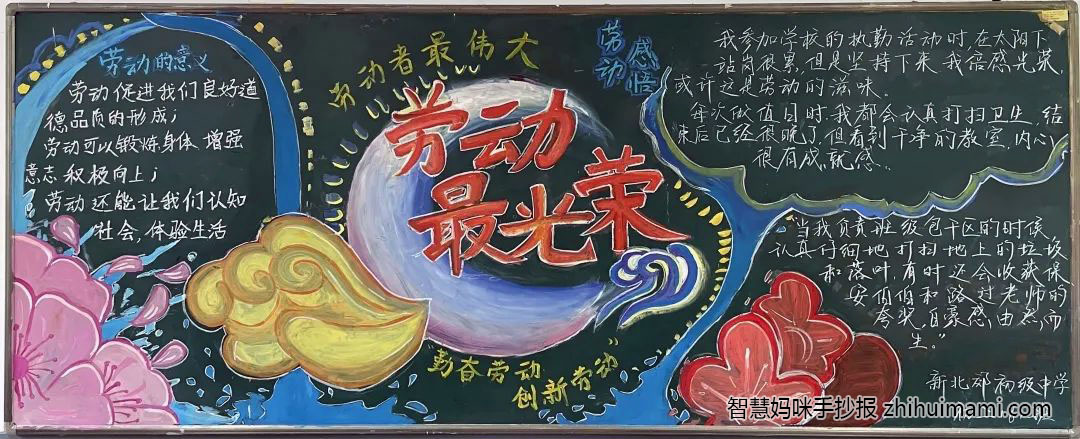 劳动的意义
劳动促进我们良好道
德品质的形成；
劳动可以锻炼身体 增强
意志 积极向上；
劳动 还能让我们认知
社会，体验生活
劳动者最伟大
劳动
最光荣
勤奋劳动
创新劳动
劳动
感悟
我参加学校的执勤活动时，在太阳下
站岗很累，但是坚持下来，我倍感光荣，
或许这是劳动的滋味．
每次做值日时，我都会认真打扫卫生，结
束后已经很晚了，但看到干净的教室，内心
很有成就感．
"当我负责班级包干区的时候
认真仔细地打扫地上的垃圾
和落叶，有时还会收获保
安伯伯和路过老师的
夸奖，自豪感由然而
生。"
新北郊初级中学
智慧妈咪手抄报 zhihuimami.com